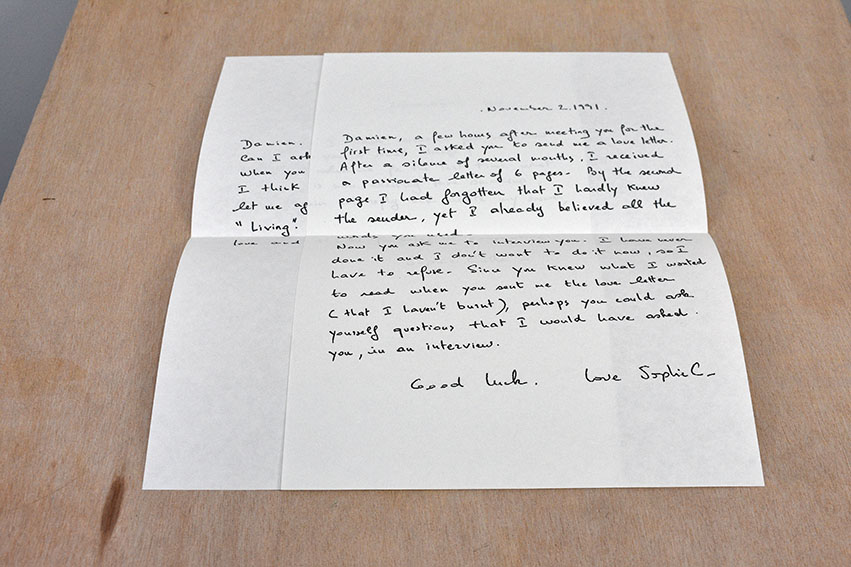 November 2.1991.
Damien, a few hours after meeting you for the
first time, I asked you to send me a love letter.
After a silence of several months, I received
a passionate letter of 6 pages. By the second
page I had forgotten that I hardly knew
the sender, yet I already believed all the
words you used.
Now you ask me to interview you. I have never
done it and I don't want to do it now, so I
have to refuse. Since you knew what I wanted
to read when you sent me the love letter
(that I haven't burnt), perhaps you could ask
yourself questions that I would have asked
you, in an interview.
Good luck. Love Sophie C_
Damien.
Can I ask
when you
I think
let me
"Living".
love and